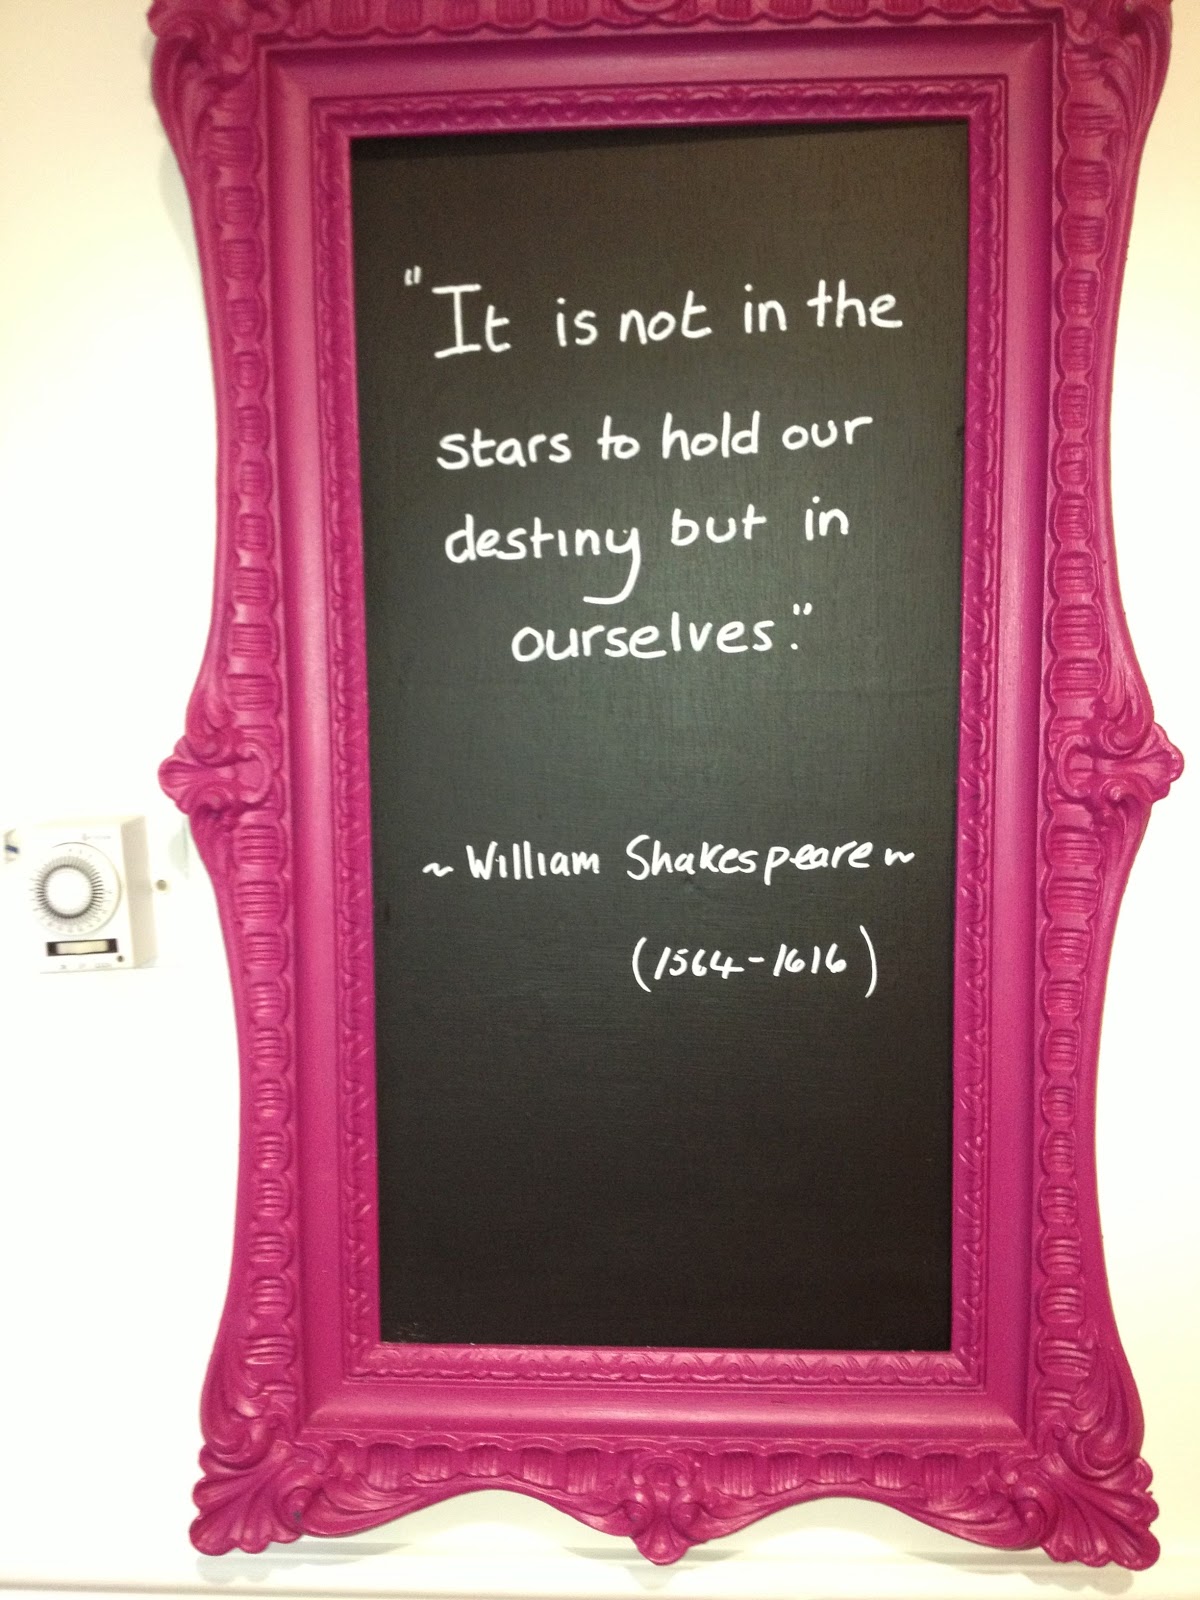 "It is not in the
stars to hold our
destiny but in
ourselves."
~ William Shakespeare ~
(1564-1616)